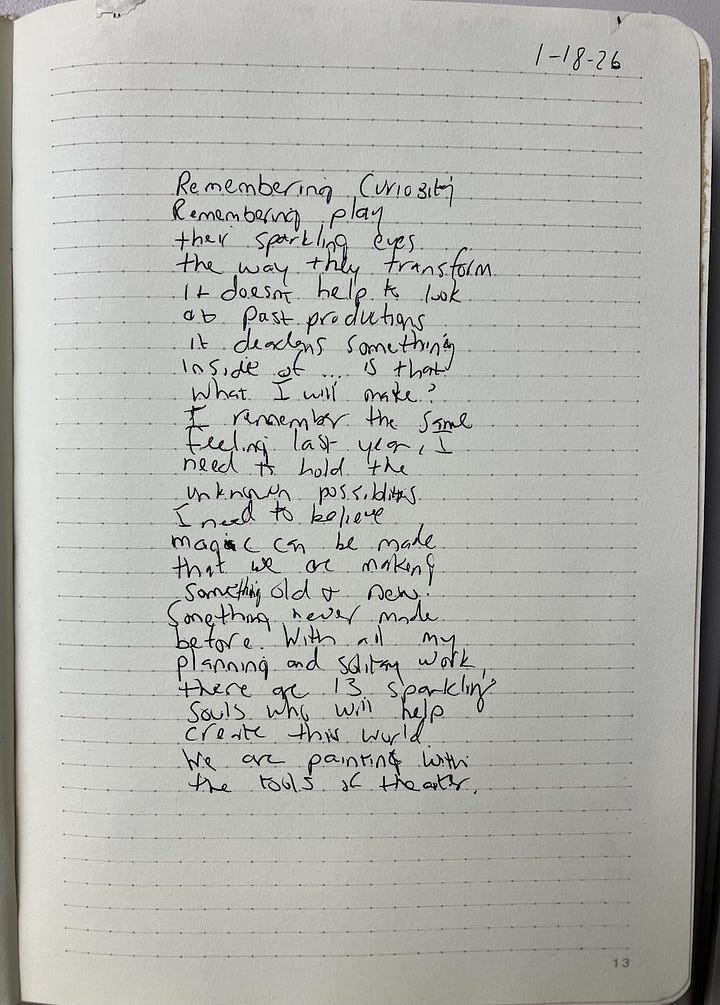 1-18-26
Remembering Curiosity
Remembering play
their sparkling eyes
the way they transform
It doesnt help to look
at past productions
it deadens something
inside of ... is that
what I will make?
I remember the same
feeling last year, I
need to hold the
unknown possiblities
I need to believe
magic can be made
that we are making
something old + new.
Something never made
before. With all my
planning and solitary work,
there are 13 sparkling
souls who will help
create this world
We are painting with
the tools of theater.
13